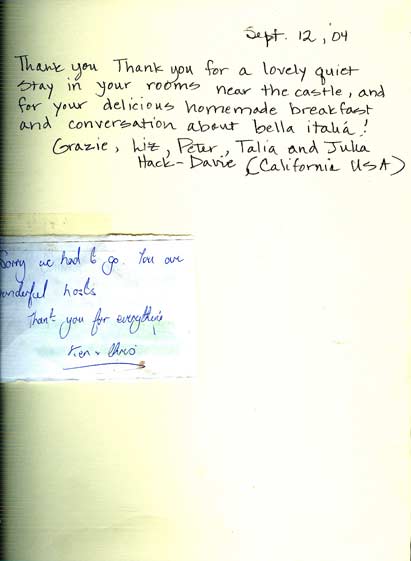 Sept. 12, '04
Thank you Thank you for a lovely quiet
stay in your rooms near the castle, and
for your delicious homemade breakfast
and conversation about bella italiá!
Grazie, Liz, Peter, Talia and Julia
Hack-Davie (California USA)
Sorry we had to go. You are
wonderful hosts
Thank you for everything
Ken +